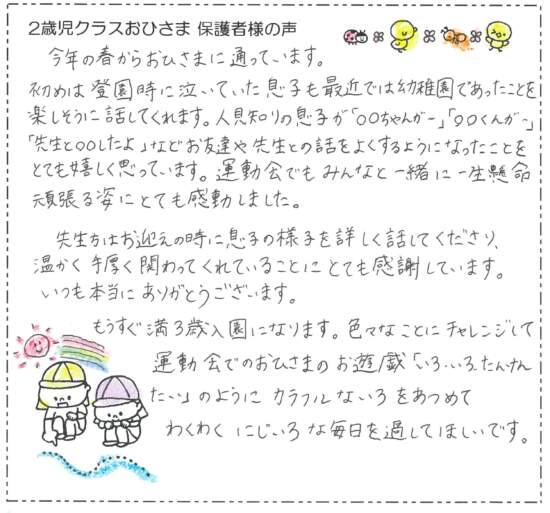 2歳児クラスおひさま 保護者様の声
今年の春からおひさまに通っています。
初めは登園時に泣いていた息子も最近では幼稚園であったことを
楽しそうに話してくれます。人見知りの息子が「〇〇ちゃんがー」「〇〇くんがー」
「先生と〇〇したよ」などお友達や先生との話をよくするようになったことを
とても嬉しく思っています。運動会でもみんなと一緒に一生懸命
頑張る姿にとても感動しました。
先生方はお迎えの時に息子の様子を詳しく話してくださり、
温かく手厚く関わってくれていることにとても感謝しています。
いつも本当にありがとうございます。
もうすぐ満3歳入園になります。色々なことにチャレンジして
運動会でのおひさまのお遊戯「いろ・いろ・たんけん
たい」のようにカラフルないろをあつめて
わくわくにじいろな毎日を過してほしいです。